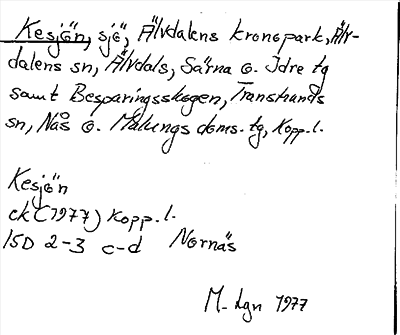 Kesjön, sjö, Älvdalens kronopark, Älv-
dalens sn, Älvdals, Särna o. Idre tg
samt Besparingsskogen, Transtrands
sn, Nås o. Malungs doms. tg, Kopp. l.
Kesjön
ek (1977) Kopp. l.
15D 2-3 c-d Nornäs
M-lgn 1977